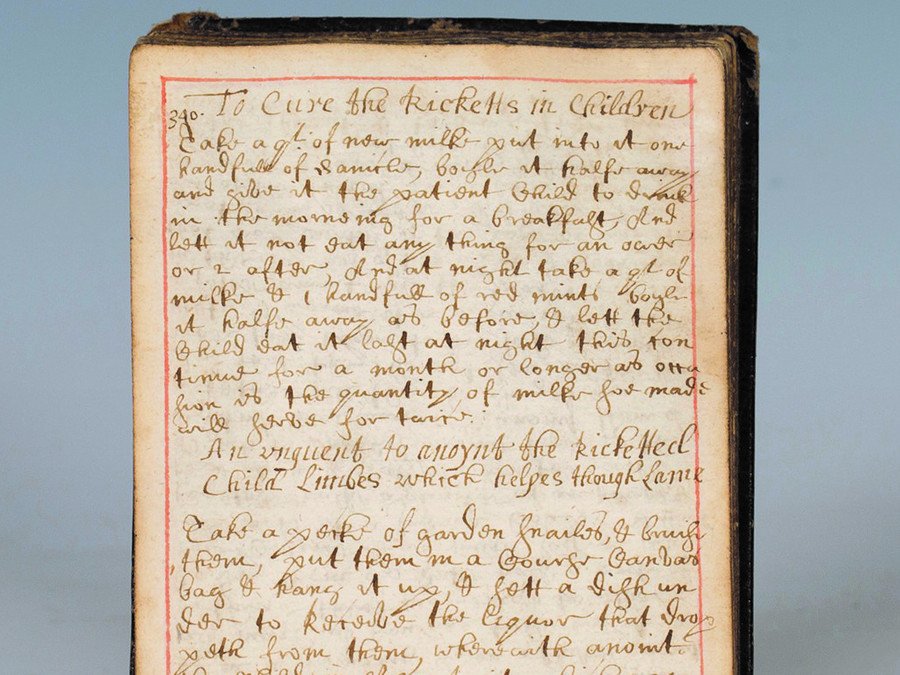 340. To Cure the Ricketts in Children
Take a qt. of new milke put into it one
handfull of Sanicle, boyle it halfe away
and give it the patient Child to drink
in the morneing for a breakfast, And
lett it not eat any thing for an ower
or 2 after, And at night take a qt. of
milke & 1 handfull of red mints boyle
it halfe away as before, & lett the
Child eat it last at night this con
tinue for a month or longer as occa
sion is the quantity of milke soe made
will serve for twice.
An unguent to anoynt the Ricketted
Child Limbes which helpes though Lame
Take a pecke of garden snailes, & bruise
them, put them in a Course Canvas
bag & hang it up, & sett a dish un
der to Receive the liquor that drop
peth from them, wherewith anoint